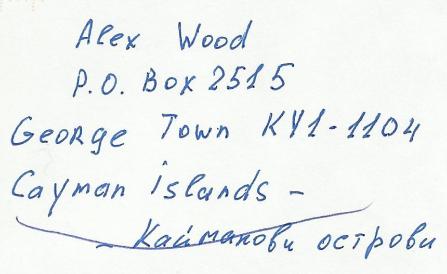 Alex Wood
P.O. Box 2515
George Town KY1-1104
Cayman islands -
- Кайманови острови